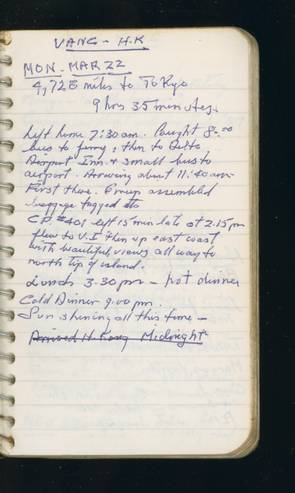 VANG - H.K
MON. MAR 22
4,725 miles to Tokyo
9 hrs 35 minutes.
Left home 7:30 am. Caught 8.00
bus to ferry, then to Delta
Airport Inn & small bus to
airport. Arriving about 11:40 am.
First there. Group assembled
luggage tagged etc
CP #401 left 15 min late at 2.15 pm
flew to V.I. then up east coast
with beautiful views all way to
north tip of island.
Lunch 3.30 pm - hot dinner
Cold Dinner 9:00 pm.
Sun shining all this time -
Arrived H. Kong Midnight